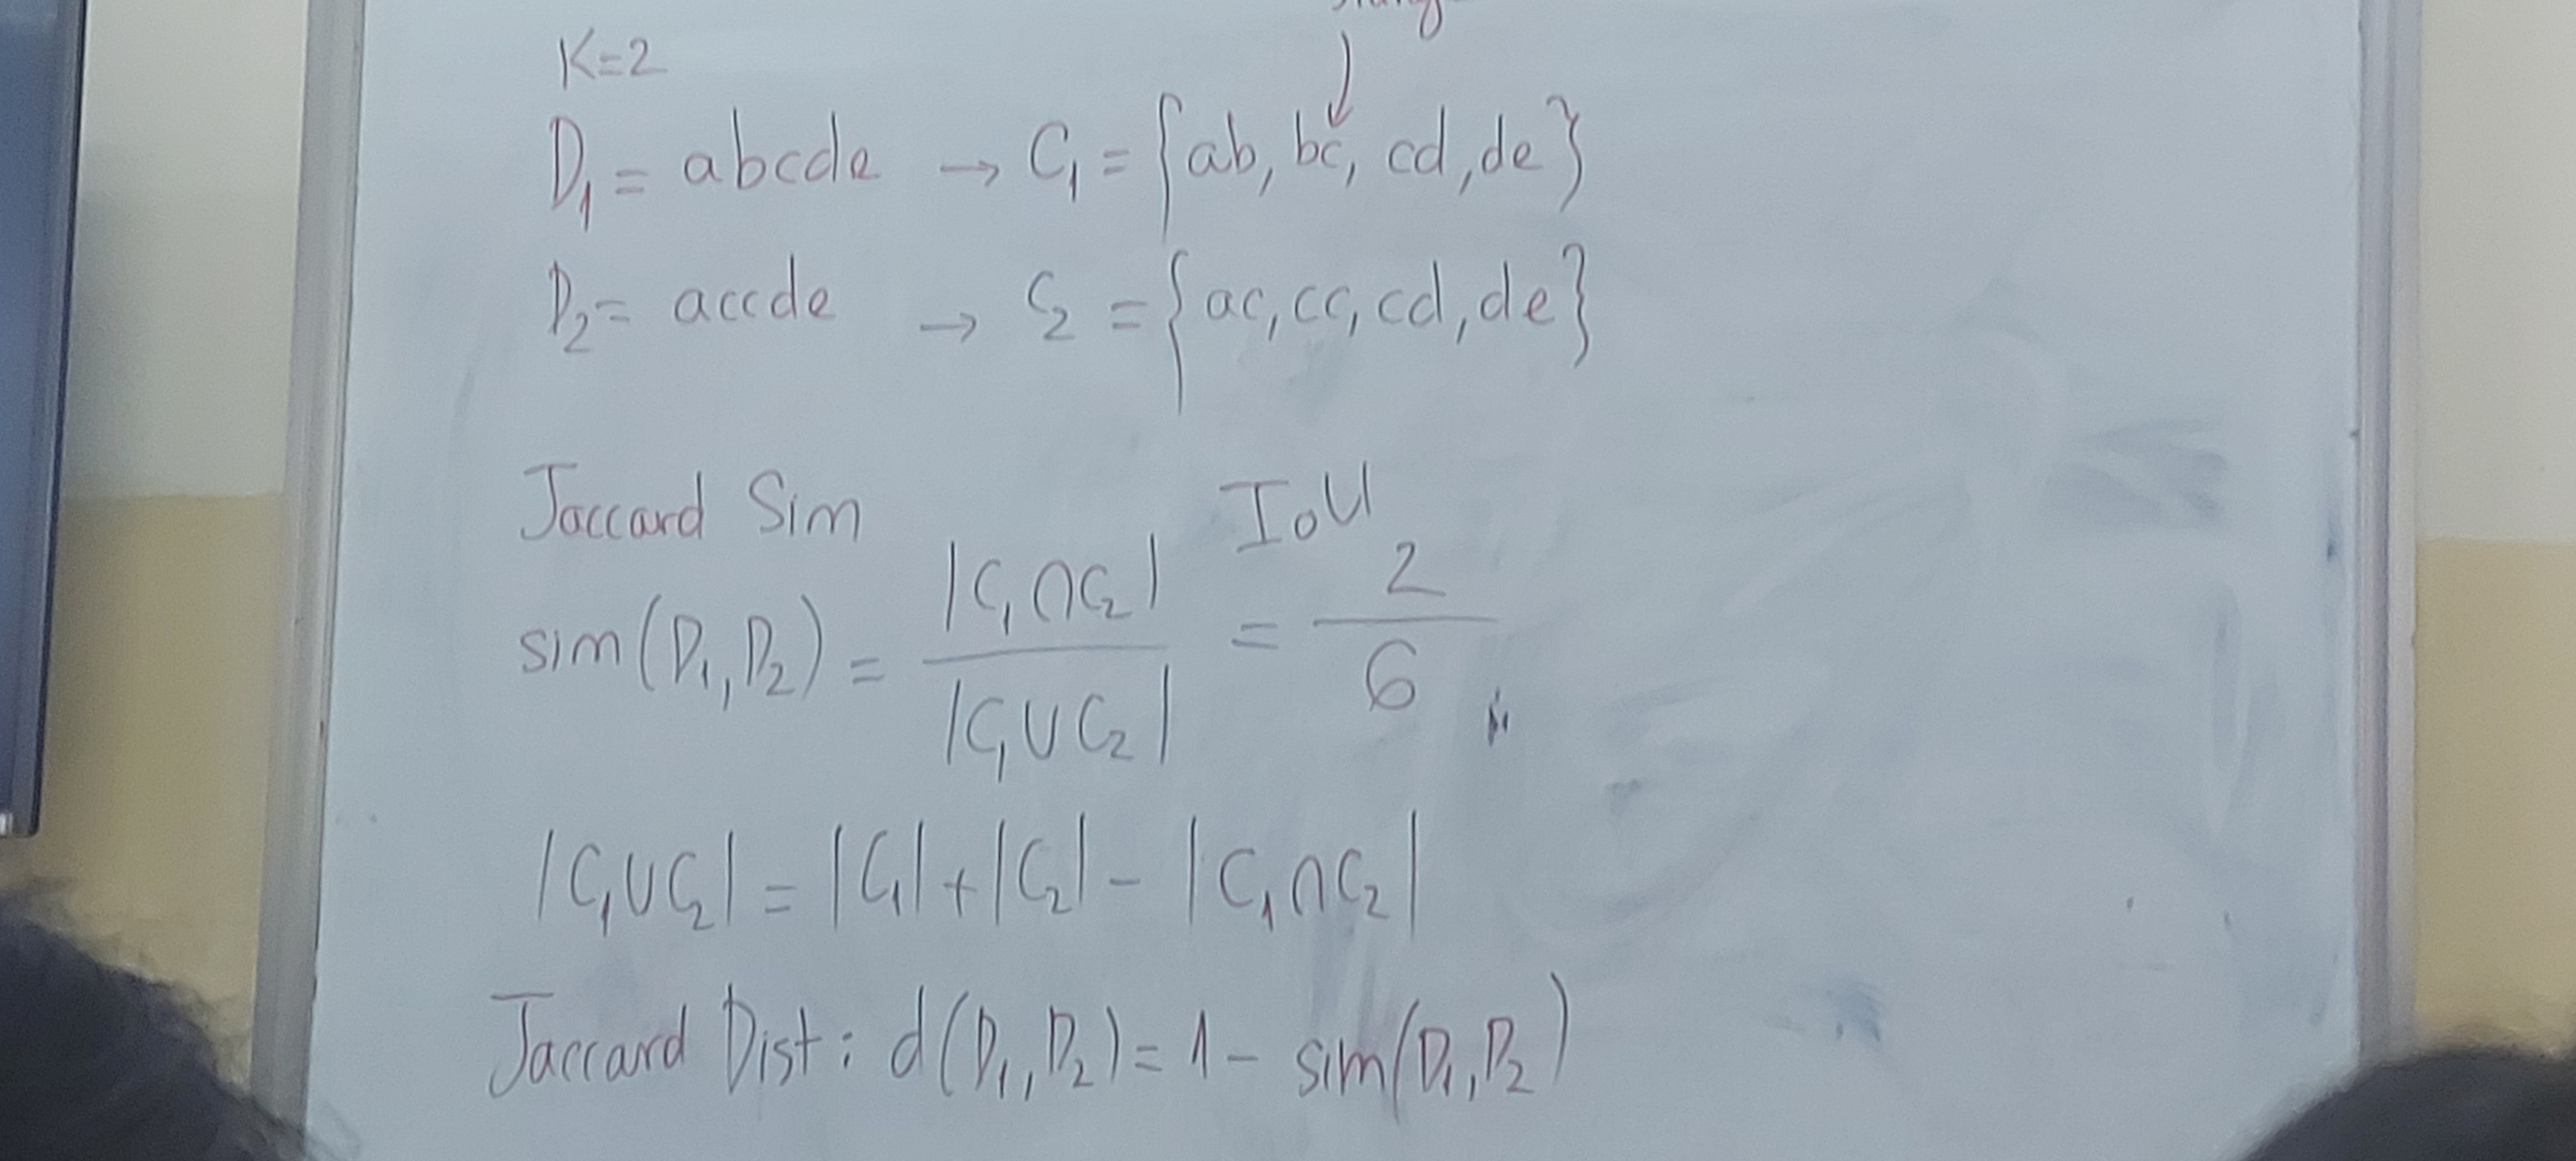 K=2
D₁ = abcde → C₁ = {ab, bc, cd, de}
D₂ = accde → C₂ = {ac, cc, cd, de}
Jaccard Sim IoU
sim(D₁, D₂) = |C₁∩C₂| / |C₁∪C₂| = 2 / 6
|C₁∪C₂| = |C₁| + |C₂| - |C₁∩C₂|
Jaccard Dist: d(D₁, D₂) = 1 - sim(D₁, D₂)